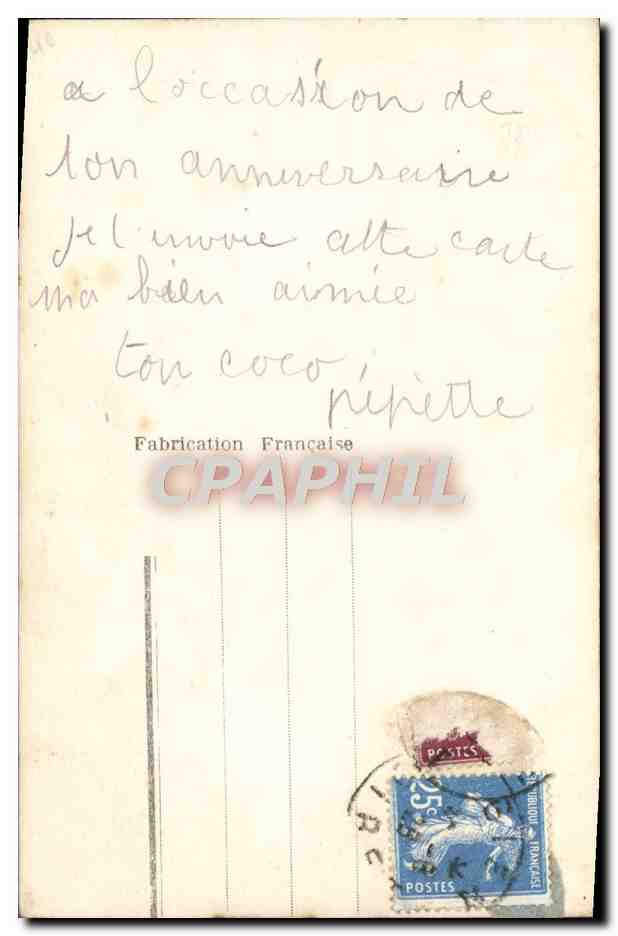 a l'occasion de
ton anniversaire
je t'envoie cette carte
ma bien aimée
ton coco,
pépette
Fabrication Française
CPAPHIL
POSTES
25c
REPUBLIQUE FRANÇAISE
POSTES